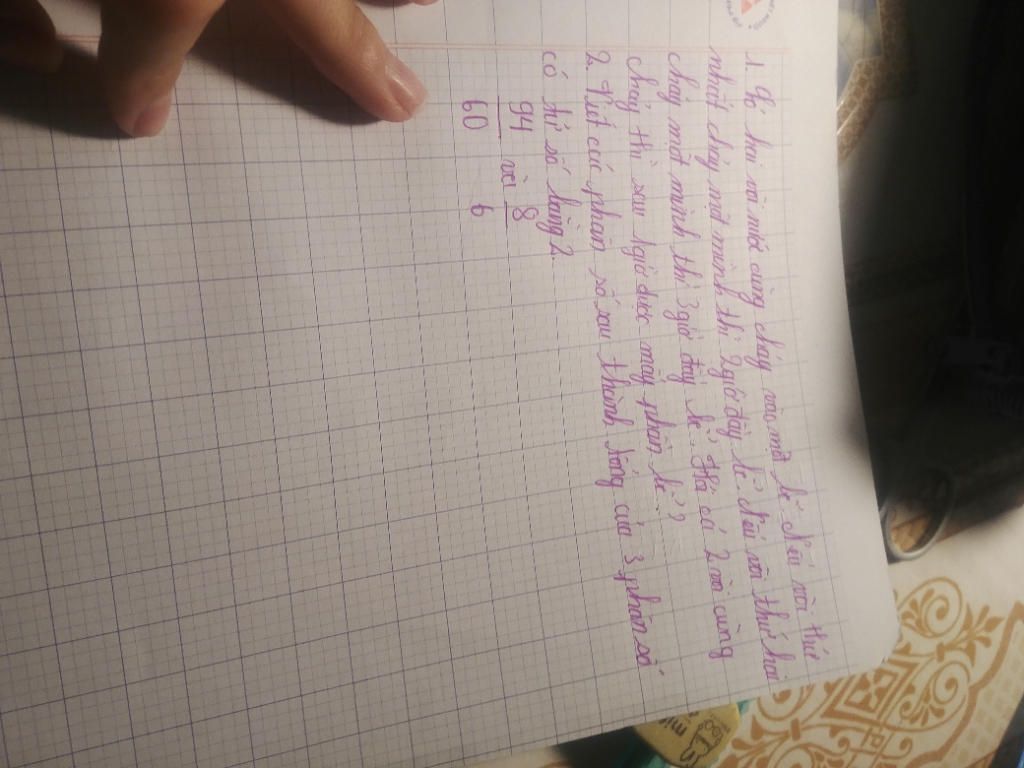 1. Có hai vòi nước cùng chảy vào một bể. Nếu vòi thứ
nhất chảy một mình thì 2giờ đầy bể. Nếu vòi thứ hai
chảy một mình thì 3 giờ đầy bể. Hỏi cả 2 vòi cùng
chảy thì sau 1giờ được mấy phần bể?
2. Viết các phân số sau thành tổng của 3 phân số
có tử số bằng 2.
94/60 và 8/6